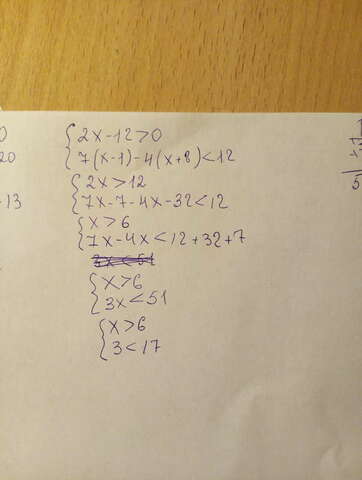 0
20
-13
2x-12>0
7(x-1)-4(x+8)<12
2x>12
7x-7-4x-32<12
x>6
7x-4x<12+32+7
3x<51
x>6
3x<51
x>6
3<17
5